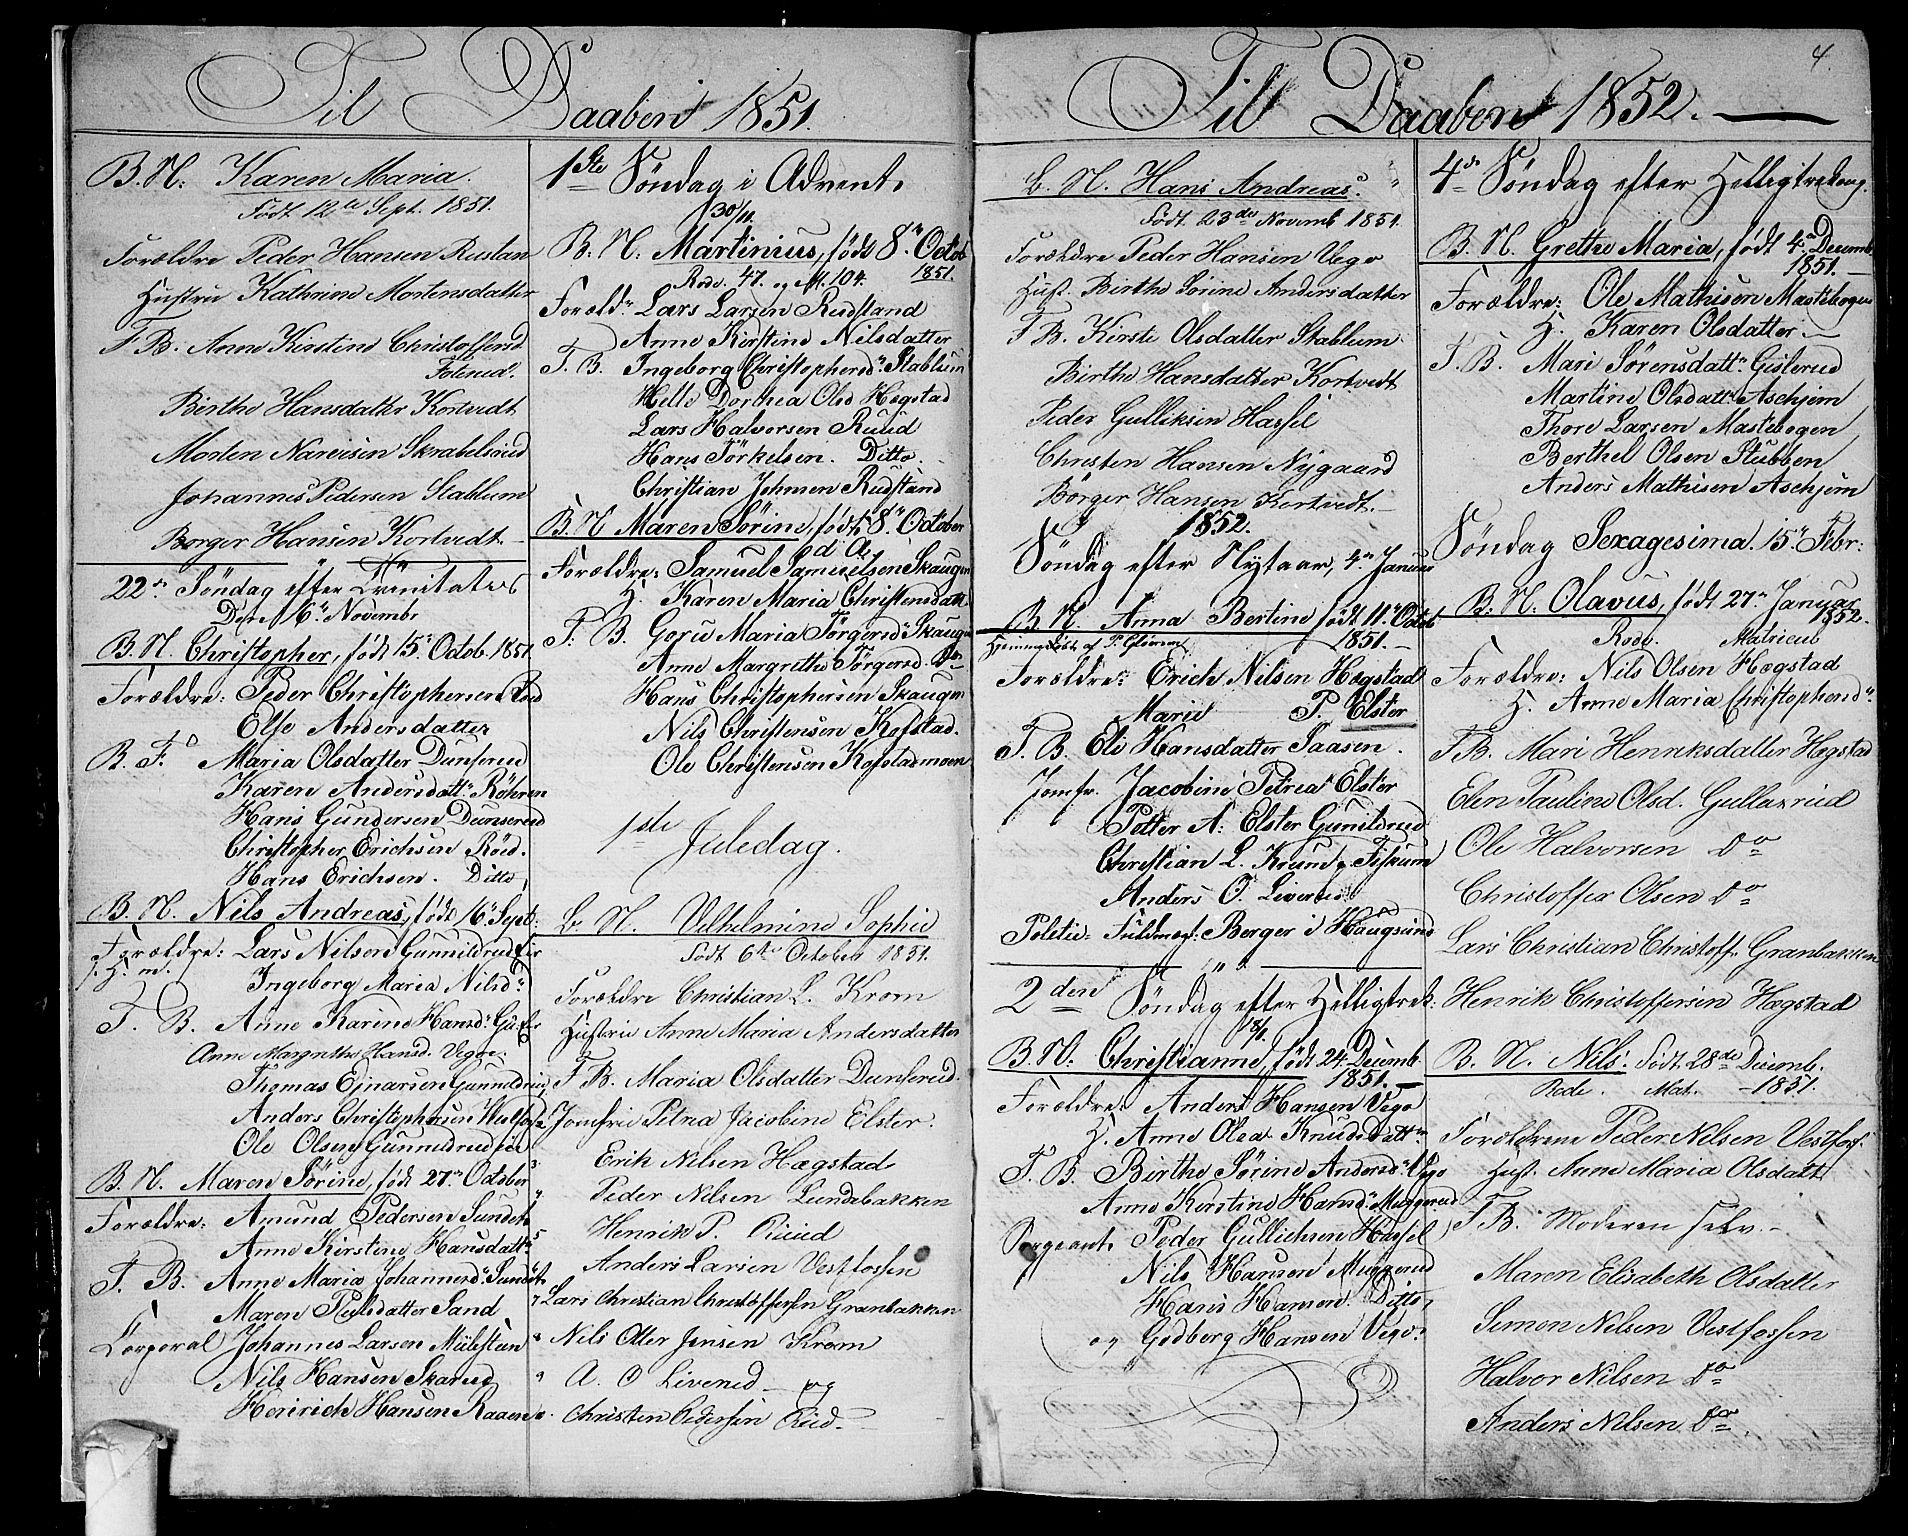 Til Daaben 1851.
B. N: Karen Maria.
Født 12te Sept. 1851.
Forældre Peder Hansen Rustan
Hustru Kathrine Mortensdatter
F B. Anne Kirstine Christoffersd.
Birthe Hansdatter Kortvedt
Morten Narvisen Skrabelsrud
Johannes Pedersen Stablum
Borger Hansen Kortvedt.
22de Søndag efter Trinitates
Den 16de Novembr
B. N. Christopher, født 15de Octob. 1851
Forældre: Peder Christophersen Röd
Else Andersdatter
B. F. Maria Olsdatter Dunserud
Karen Andersdattr Röhren
Hans Gundersen Dunserud
Christopher Erichsen Röed.
Hans Erichsen. Ditto,
B. N. Nils Andreas, født 16de Sept:
Forældre: Lars Nilsen Gunnildrud Eir
f. H. m.
Ingeborg Maria Nilsdr
F. B. Anne Karine Hansdr
Anne Margrethe Hansd. Vego.
Thomas Ejnarsen Gunnildrud,
Anders Christophersen
Ole Olsen Gunnildrud
B. N. Maren Sörine, født 27de October
Forældre: Amund Pedersen Sundet
Anne Kirstine Hansdattr
F. B. Anne Maria Johannesdr Sundet
Maren Pulsdatter Sand
Corporal Johannes Larsen Mülestuen
Nils Hansen Skarud
Heinrich Hansen Raaen
1ste Søndag i Advent.
30/11.
B. N: Martinius, født 8de Octob
1851.
Rode. 47. og M. 104.
Foreldr Lars Larsen Rudstand
Anne Kirstine Nilsdatter
F. B. Ingeborg Christophersdr Stablum
Helle Dorthea Olsd Hægstad
Lars Halvorsen Ruud
Hans Törkelsen. Ditto.
Christian Johnsen Rudstand
B. N Maren Sörine, født 8de October
d. A.
Forældre: Samuel Samuelsen Skaugen
H. Karen Maria Christensdatt
F. B. Goru Maria Törgersdr Skaugen
Anne Margrethe Törgersd. Do
Hans Christophersen Skaugen
Nils Christensen Kofstad.
Ole Christensen Kofstadmoen
1ste Juledag.
b. N. Vilhelmine Sophie
Født 6te October 1851.
Forældre Christian L. Krom
Hustrue Anne Maria Andersdatter
F. B. Maria Olsdatter Dunserud.
Jomfrue Petrea Jacobine Elster.
3. Erik Nilsen Hægstad
4 Peder Nilsen Lundebakken
5 Henrik P. Ruud
Anders Larsen Vestfossen
7 Lars Christian Christoffersen Granbakken
8 Nils Otter Jensen Krom
9 A. O Liverud og
Christen Pedersen Rud.
4
Till Daaben 1852.
b. N. Hans Andreas.
Født 23de Novemb 1851.
Forældre Peder Hansen Vego
Hust. Birthe Sörine Andersdatter
F B. Kirste Olsdatter Stablum
Birthe Hansdatter Kortvedt
Peder Gulliksen Hassel
Christen Hansen Nygaard
Börger Hansen Kortvedt.
1852.
Søndag efter Nytaar, 4de Januar
B. N. Anna Bertine født 11de Octob
1851.
Hjemmedöbt af P. Glörersen
Forældre: Erich Nilsen Hægstad
Marie P. Elster
F. B. Eli Hansdatter Saasen.
Jomfr. Jacobine Petrea Elster
Petter A. Elster Gunildrud
Christian L. Krom, Fiskum
Anders O. Liverud
Politie-Fuldmæg: Berger i Haugsund
2den Søndag efter Helligtrek:
18/1.
B. N: Christianne, født 24. Decemb.
1851.
Forældre: Anders Hansen Vego
H. Anne Olea Knudsdattr
F. B. Birthe Sörine Andersdr Vego
Anne Kerstine Hansdr Muggerud
Sergeant Peder Gullichsen Hassel
Nils Hansen Muggerud
Hans Hansen. Ditto,
og Godberg Hansen Vego.
4de Søndag efter Helligtrekong.
B. N. Grethe Maria, født 4de Decemb.
1851.
Forældre: Ole Mathisen Mastebogen
H. Karen Olsdatter.
F. B. Mari Sørensdattr Gisterud
Martine Olsdattr Aschjem
Thore Larsen Mastebogen
Berthel Olsen Stubben
Anders Mathisen Aschjem
Søndag Sexagesima. 15de Febr:
B. N: Olavus, født 27de Januar
1852.
Rode. Matricul
Forældre: Nils Olsen Hægstad
H. Anne Maria Christophersdr
F B. Mari Henriksdatter Hegstad
Elen Pauline Olsd. Gullaxrud
Ole Halvorsen Do
Christoffer Olsen Do
Lars Christian Christoff. Granbakken
Henrik Christoffersen Hægstad
B. N. Nils: Født 28de Decemb.
Rode. Mat. 1851.
Forældrene Peder Nilsen Vestfos.
Hust. Anne Maria Olsdatt
F B. Moderen selv.
Maren Elisabeth Olsdatter
Simon Nilsen Vestfossen
Halvor Nilsen Do
Anders Nilsen Do.